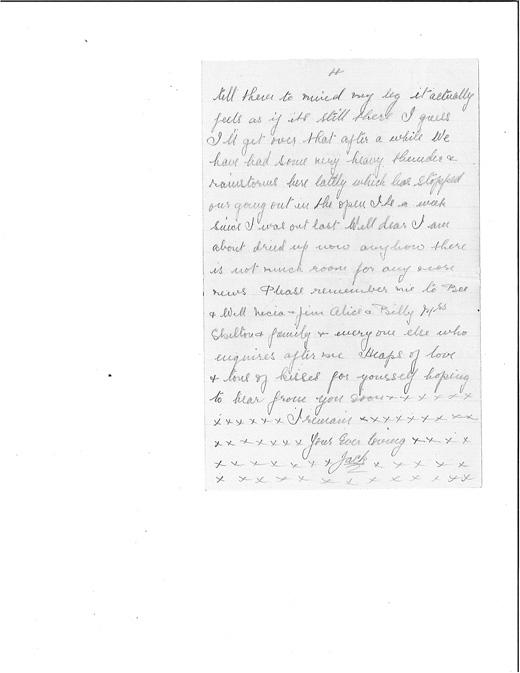 4
tell them to mind my leg it actually
feels as if its still there I guess
I'll get over that after a while We
have had some very heavy thunder &
rainstorms here lattly which has stopped
our going out in the open Its a week
since I was out last Well dear I am
about dried up now anyhow there
is not much room for any more
news Please remember me to Bee
& Will Necia & Jim Alice & Billy Mrs
Shelton & family & every one else who
enquires after me Heaps of love
& tons of kisses for yourself hoping
to hear from you soon x x x x x x x
x x x x x x I remain x x x x x x x x x
x x x x x x x Your Ever loving x x x x
x x x x x x x x Jack x x x x x x
x x x x x x x x x x x x x x